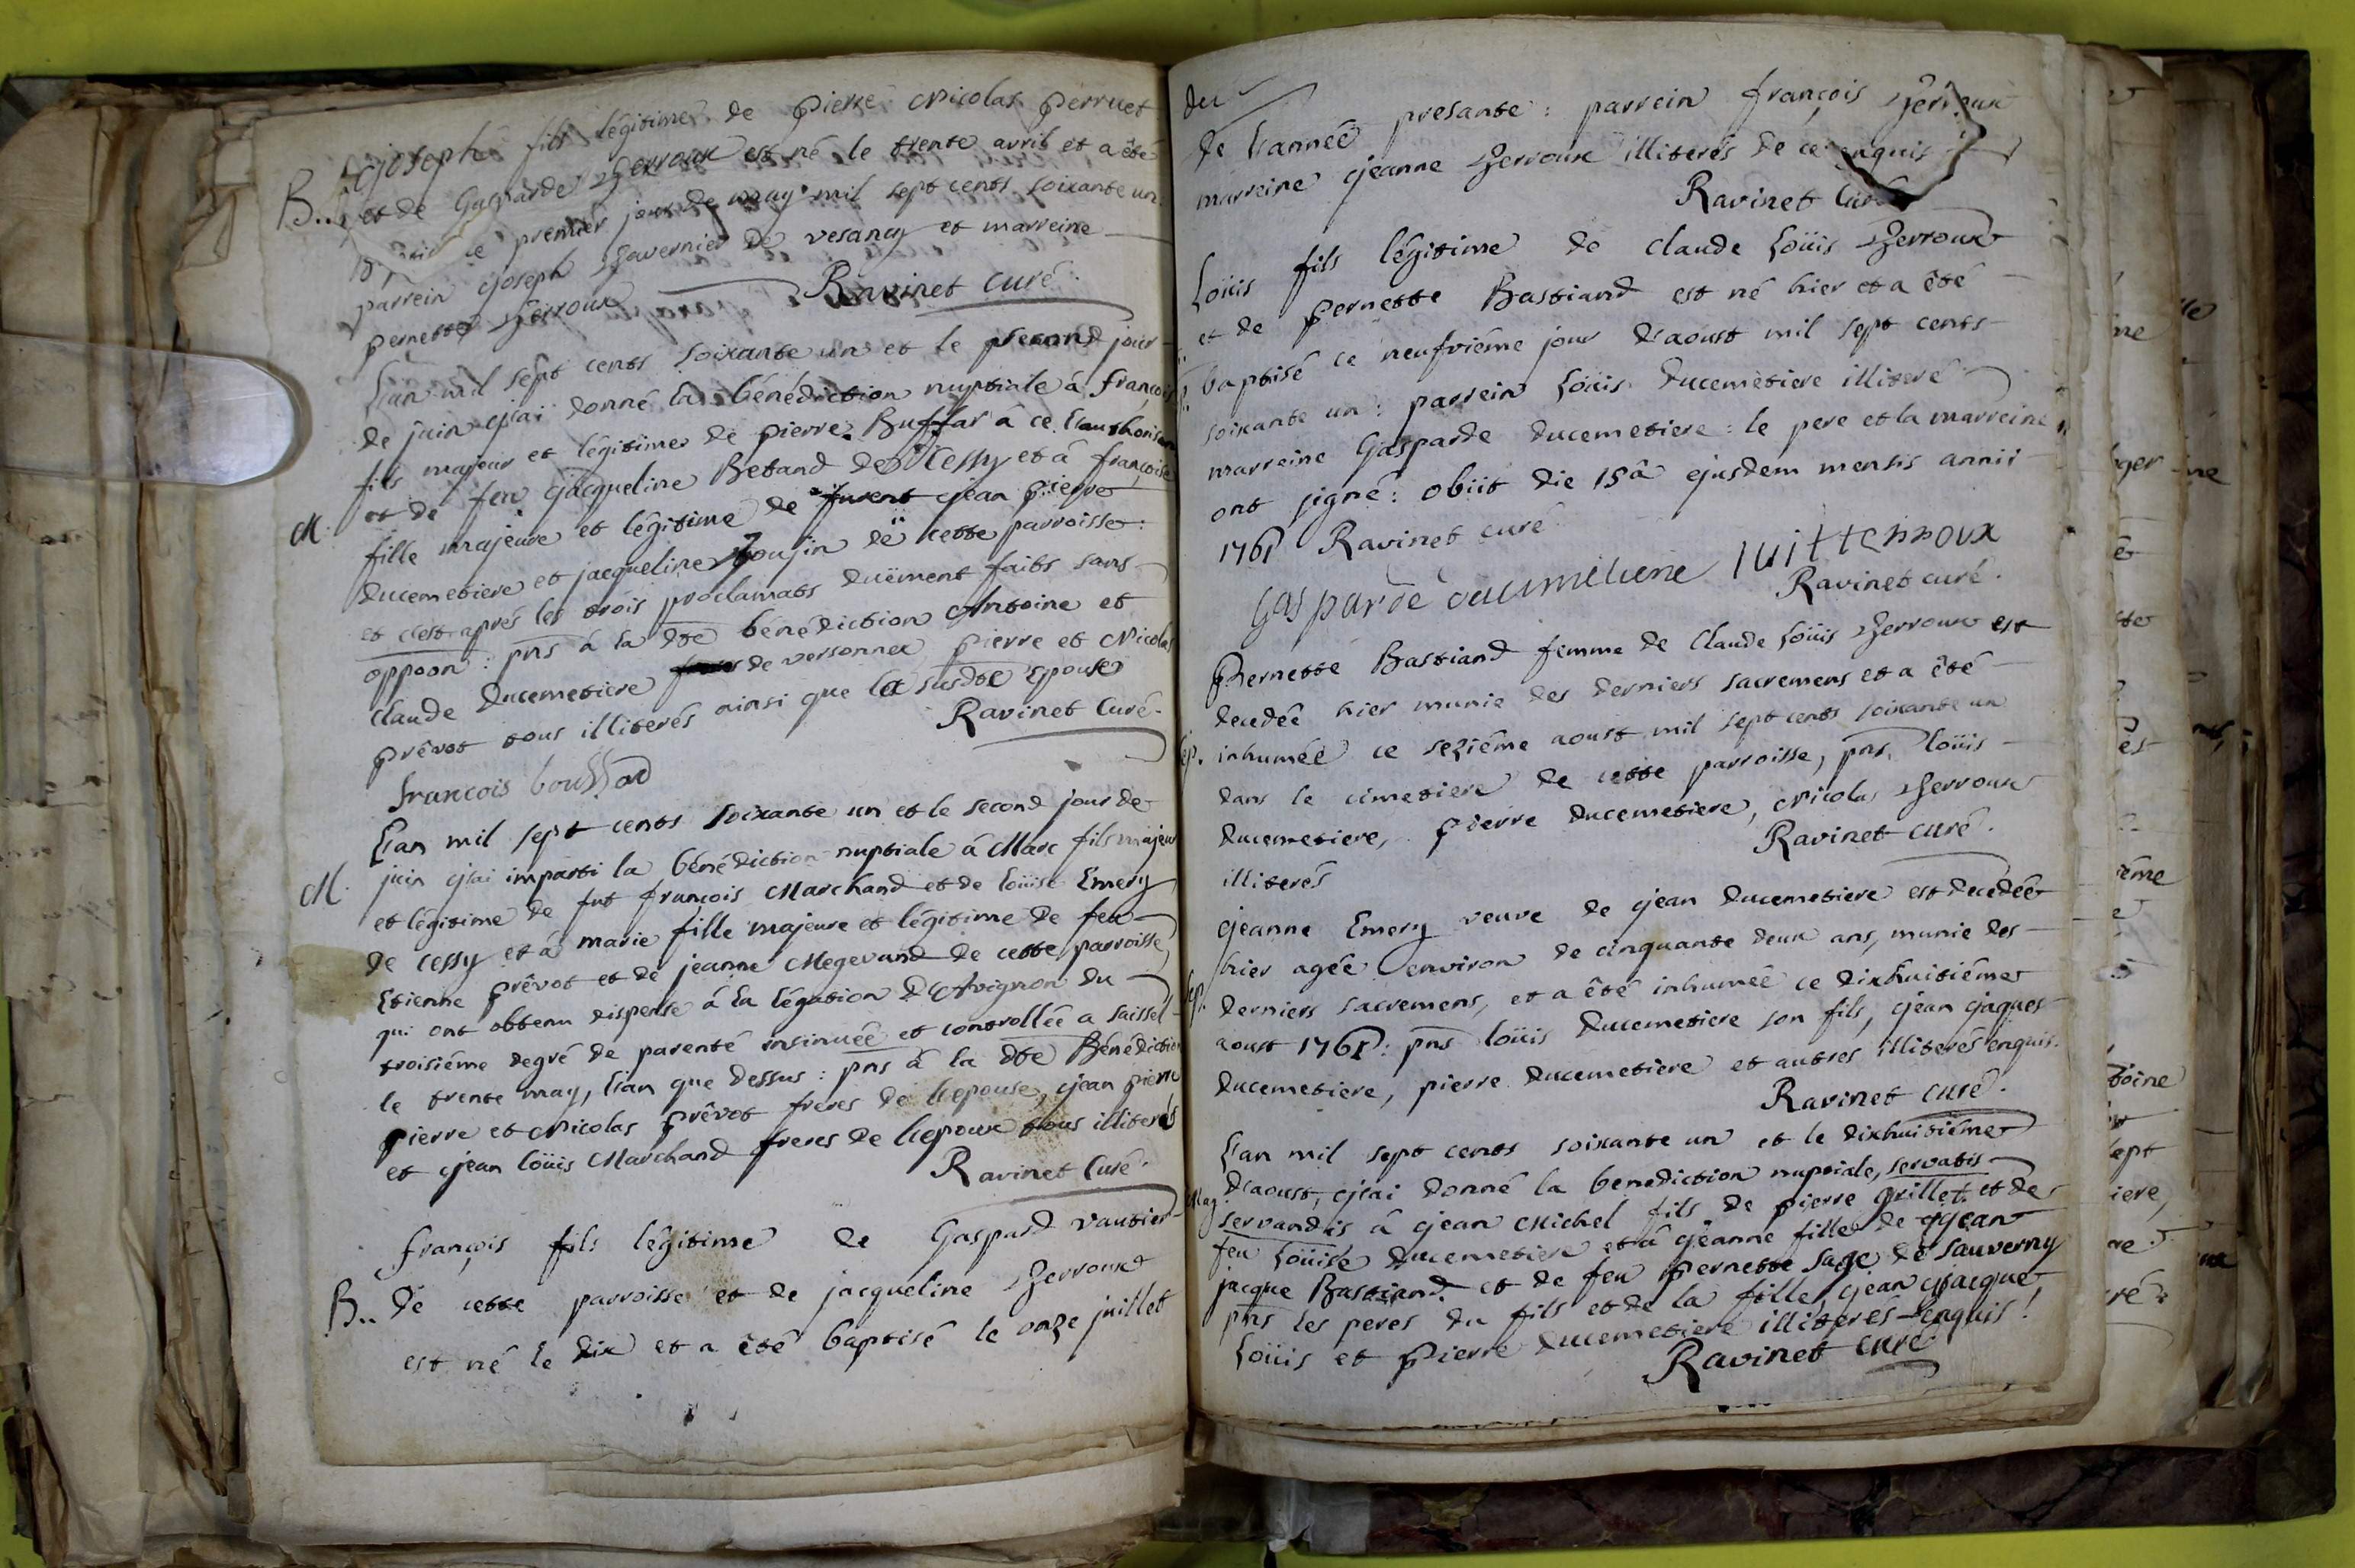 joseph fils légitime de pierre Nicolas perruet
B.. et de Gasparde Perroux est né le trente avril et a été
ce premier jour de may mil sept cents soixante un
parrein joseph Tavernier de vesancy et marreine
pernette Perroux Ravinet curé.
L'an mil sept cents soixante un et le second jour
de juin j'ai donné la bénédiction nuptiale á françois
fils majeur et légitime de pierre á ce l'authorisant
et de feu jacqueline Betand de Cessy et á françoise
M. fille majeure et légitime de jean pierre
Ducemetiere et jacqueline de cette parroisse:
et c'est aprés les trois proclamats duëment faits sans
oppoon: pns á la dte bénédiction Antoine et
claude Ducemetiere de versonnex pierre et Nicolas
prêvot tous illiterés ainsi que la susdte Epouse
Ravinet Curé.
francois
L'an mil sept cents soixante un et le second jour de
M. juin j'ai imparti la bénédiction nuptiale á Marc fils majeur
et légitime de fut françois Marchand et de loüise Emery
de cessy et á marie fille majeure et légitime de feu
Etienne prêvot et de jeanne Megevand de cette parroisse
qui ont obtenu dispense á la légation d'Avignon du
troisiéme degré de parenté insinuée et controllée a saissel
le trente may, l'an que dessus: pns á la dte Bénédiction
pierre et Nicolas prêvot freres de l'epouse, jean pierre
et jean loüis Marchand freres de l'epoux tous illiterés
Ravinet Curé.
françois fils légitime de Gaspard vautier
B.. de cette parroisse et de jacqueline Perroux
est né le dix et a été baptisé le onze juillet
de l'année presante: parrein françois Perroux
marreine jeanne Perroux illiterés de ce enquis
Ravinet Curé
Loüis fils légitime de claude loüis Perroux
et de pernette Bastiand est né hier et a été
baptisé ce neufviéme jour d'aoust mil sept cents
soixante un: parrein loüis Ducemetiere illiteré
marreine Gasparde Ducemetiere: le pere et la marreine
ont signé: obiit die 15â ejusdem mensis annii
1761 Ravinet curé
Gasparde
Ravinet curé.
Pernette Bastiand femme de Claude loüis Perroux est
decedée hier munie des derniers sacremens et a été
sep. inhumée ce seziéme aoust mil sept cents soixante un
dans le cimetiere de cette parroisse, pns loüis
Ducemetiere, pierre Ducemetiere, Nicolas Perroux
illiterés Ravinet curé.
jeanne Emery veuve de jean Ducemetiere est decedée
hier agée environ de cinquante deux ans, munie des
sep. derniers sacremens, et a été inhumée ce dixhuitiéme
aoust 1761: pns loüis Ducemetiere son fils, jean jaques
Ducemetiere, pierre Ducemetiere et autres illiterés enquis.
Ravinet curé.
L'an mil sept cents soixante un et le dixhuitiéme
d'aoust, j'ai donné la benediction nuptiale, servatis
servandis á jean Michel fils de pierre Grillet et de
feu Loüise Ducemetiere et á jeanne fille de jean
jacque Bastiand et de feu pernette sage de sauverny
pns les peres du fils et de la fille, jean jacque,
loüis et pierre Ducemetiere illiterés enquis!
Ravinet curé